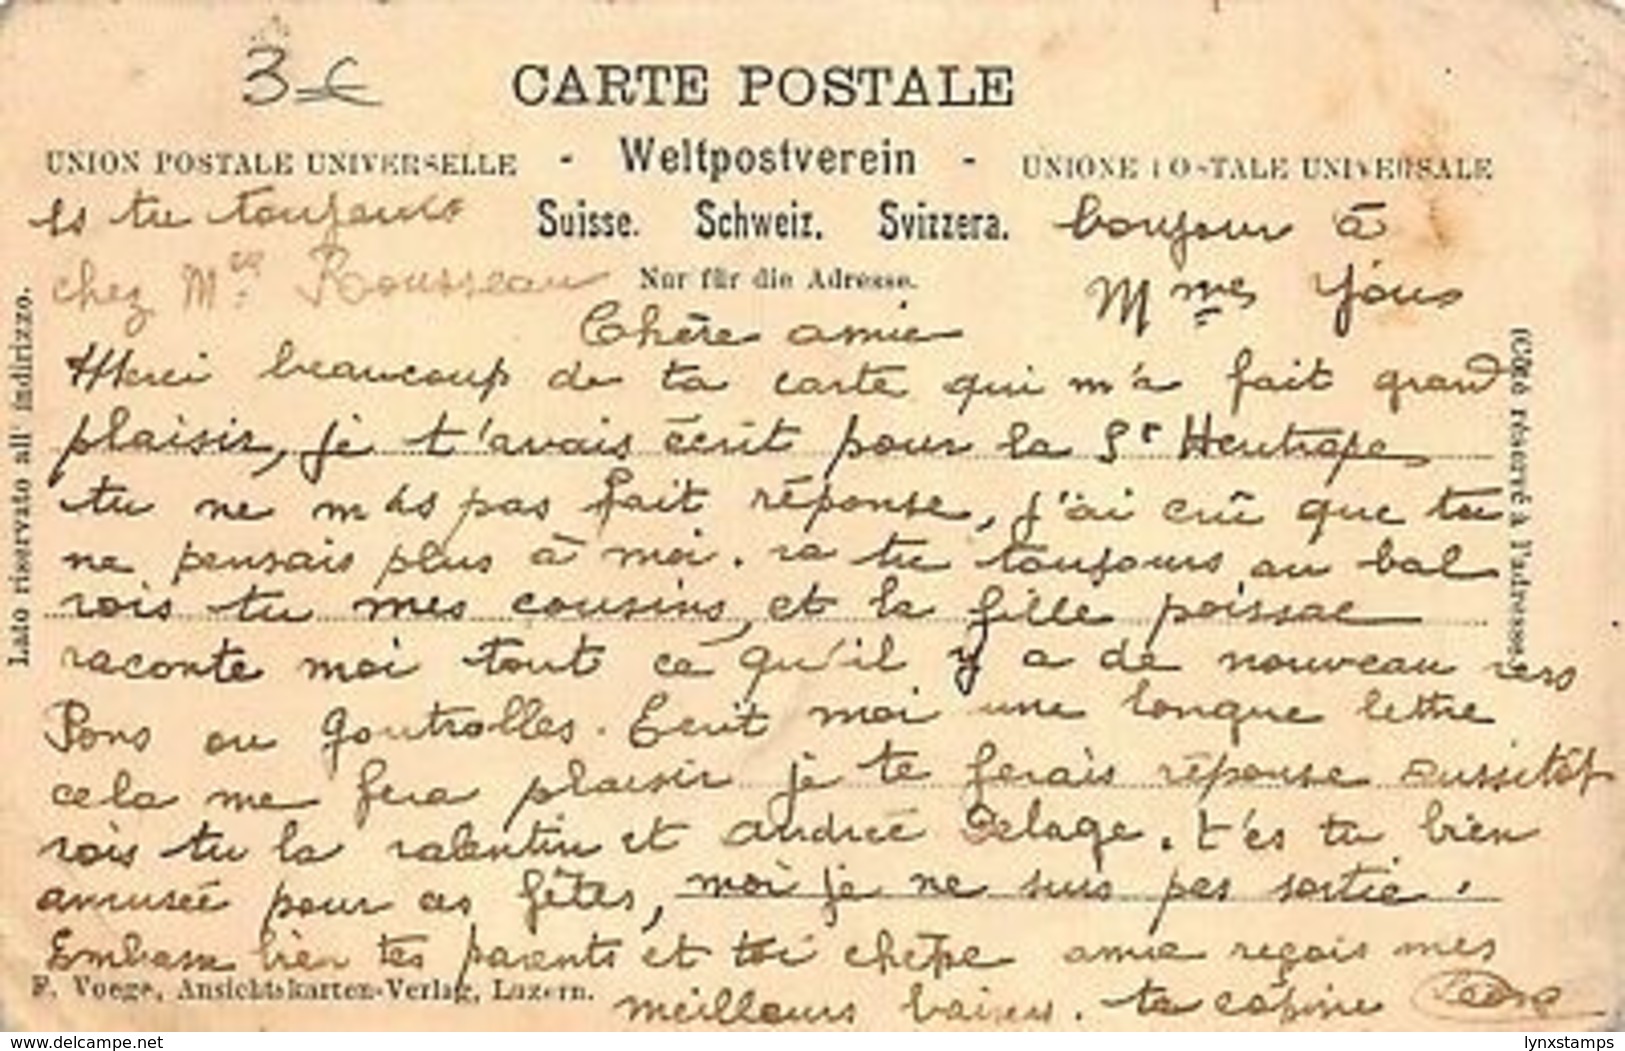 3 €
CARTE POSTALE
UNION POSTALE UNIVERSELLE - Weltpostverein - UNIONE POSTALE UNIVERSALE
Suisse. Schweiz. Svizzera.
Nur für die Adresse.
Lato riservato all' indirizzo.
(Côté réservé à l'adresse.)
Es tu toujours
chez Mme Rousseau
bonjour à
Mmes Yous
Chère amie
Merci beaucoup de ta carte qui m'a fait grand
plaisir, je t'avais écrit pour la St Heutrope
tu ne m'as pas fait réponse, j'ai crû que tu
ne pensais plus à moi. va tu toujours au bal
vois tu mes cousins, et la fille poissac
raconte moi tout ce qu'il y a de nouveau vers
Pons ou Goutrolles. Ecrit moi une longue lettre
cela me fera plaisir je te ferais réponse aussitôt
vois tu la valentin et andrée Delage. t'es tu bien
amusée pour ces fêtes, moi je ne suis pas sortie.
Embrasse bien tes parents et toi chère amie reçois mes
meilleurs baisers. ta copine
F. Voege, Ansichtskarten-Verlag, Luzern.
delcampe.net
lynxstamps